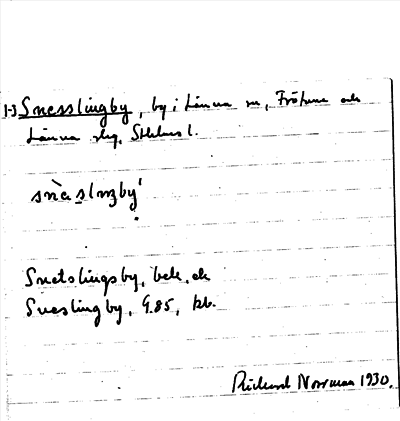 1-3 Snesslingby, by i Länna sn, Frötuna och
Länna slg, Sthlms l.
snɛ̀slɪŋby
Snetslingsby, bek. och
Sneslingby, G.85, kb.
Rickard Norrman 1930.